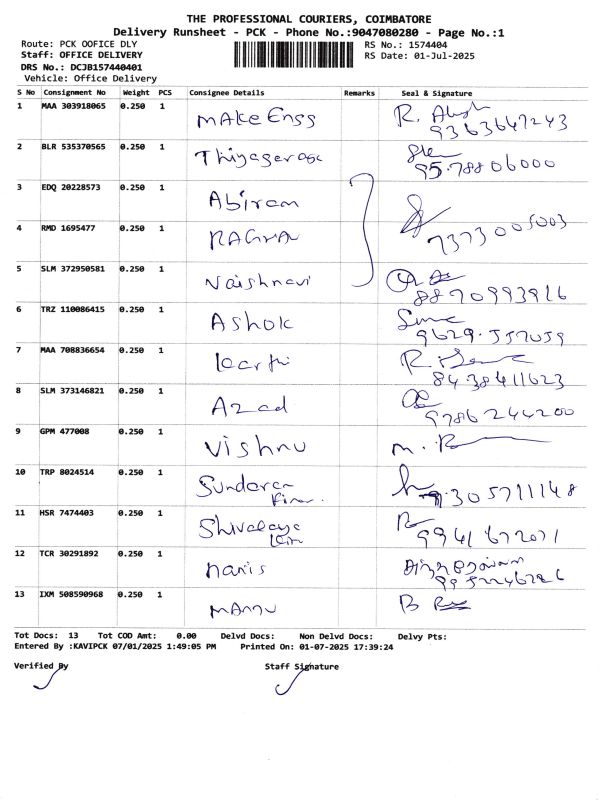 THE PROFESSIONAL COURIERS, COIMBATORE
Delivery Runsheet - PCK - Phone No.:9047080280 - Page No.:1
Route: PCK OOFICE DLY RS No.: 1574404
Staff: OFFICE DELIVERY RS Date: 01-Jul-2025
DRS No.: DCJB157440401
Vehicle: Office Delivery
S No Consignment No Weight PCS Consignee Details Remarks Seal & Signature
1 MAA 303918065 0.250 1 MAke Engg R.
9363647243
2 BLR 535370565 0.250 1
95788 06000
3 EDQ 20228573 0.250 1 Abiram
4 RMD 1695477 0.250 1 RAGHAV
7373005003
5 SLM 372950581 0.250 1 Vaishnavi
8870993916
6 TRZ 110086415 0.250 1 Ashok
9629.557059
7 MAA 708836654 0.250 1 karthi R.
8438411623
8 SLM 373146821 0.250 1 Azad
9786244200
9 GPM 477008 0.250 1 Vishnu M.
10 TRP 8024514 0.250 1 Sundaram
9305711148
11 HSR 7474403 0.250 1
9941672071
12 TCR 30291892 0.250 1 Haris
13 IXM 508590968 0.250 1 MANNU B
Tot Docs: 13 Tot COD Amt: 0.00 Delvd Docs: Non Delvd Docs: Delvy Pts:
Entered By :KAVIPCK 07/01/2025 1:49:05 PM Printed On: 01-07-2025 17:39:24
Verified By Staff Signature